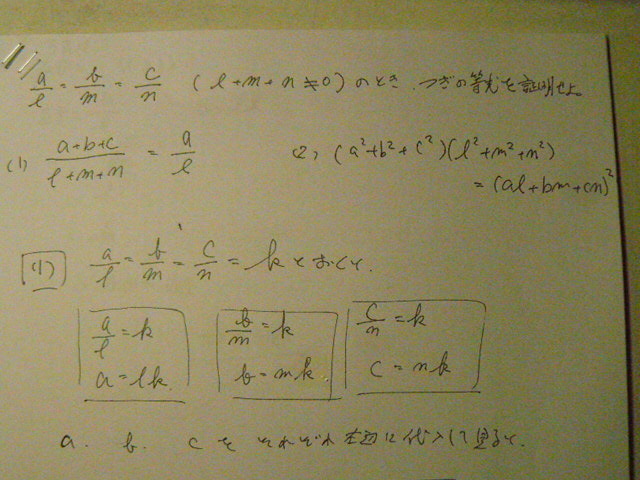 a/l = b/m = c/n (l+m+n≠0) のとき、つぎの等式を証明せよ。
(1) (a+b+c)/(l+m+n) = a/l (2) (a²+b²+c²)(l²+m²+n²)
= (al+bm+cn)²
(1) a/l = b/m = c/n = k とおくと、
a/l = k b/m = k c/n = k
a = lk b = mk c = nk
a. b. c をそれぞれ 左辺に代入して見ると、